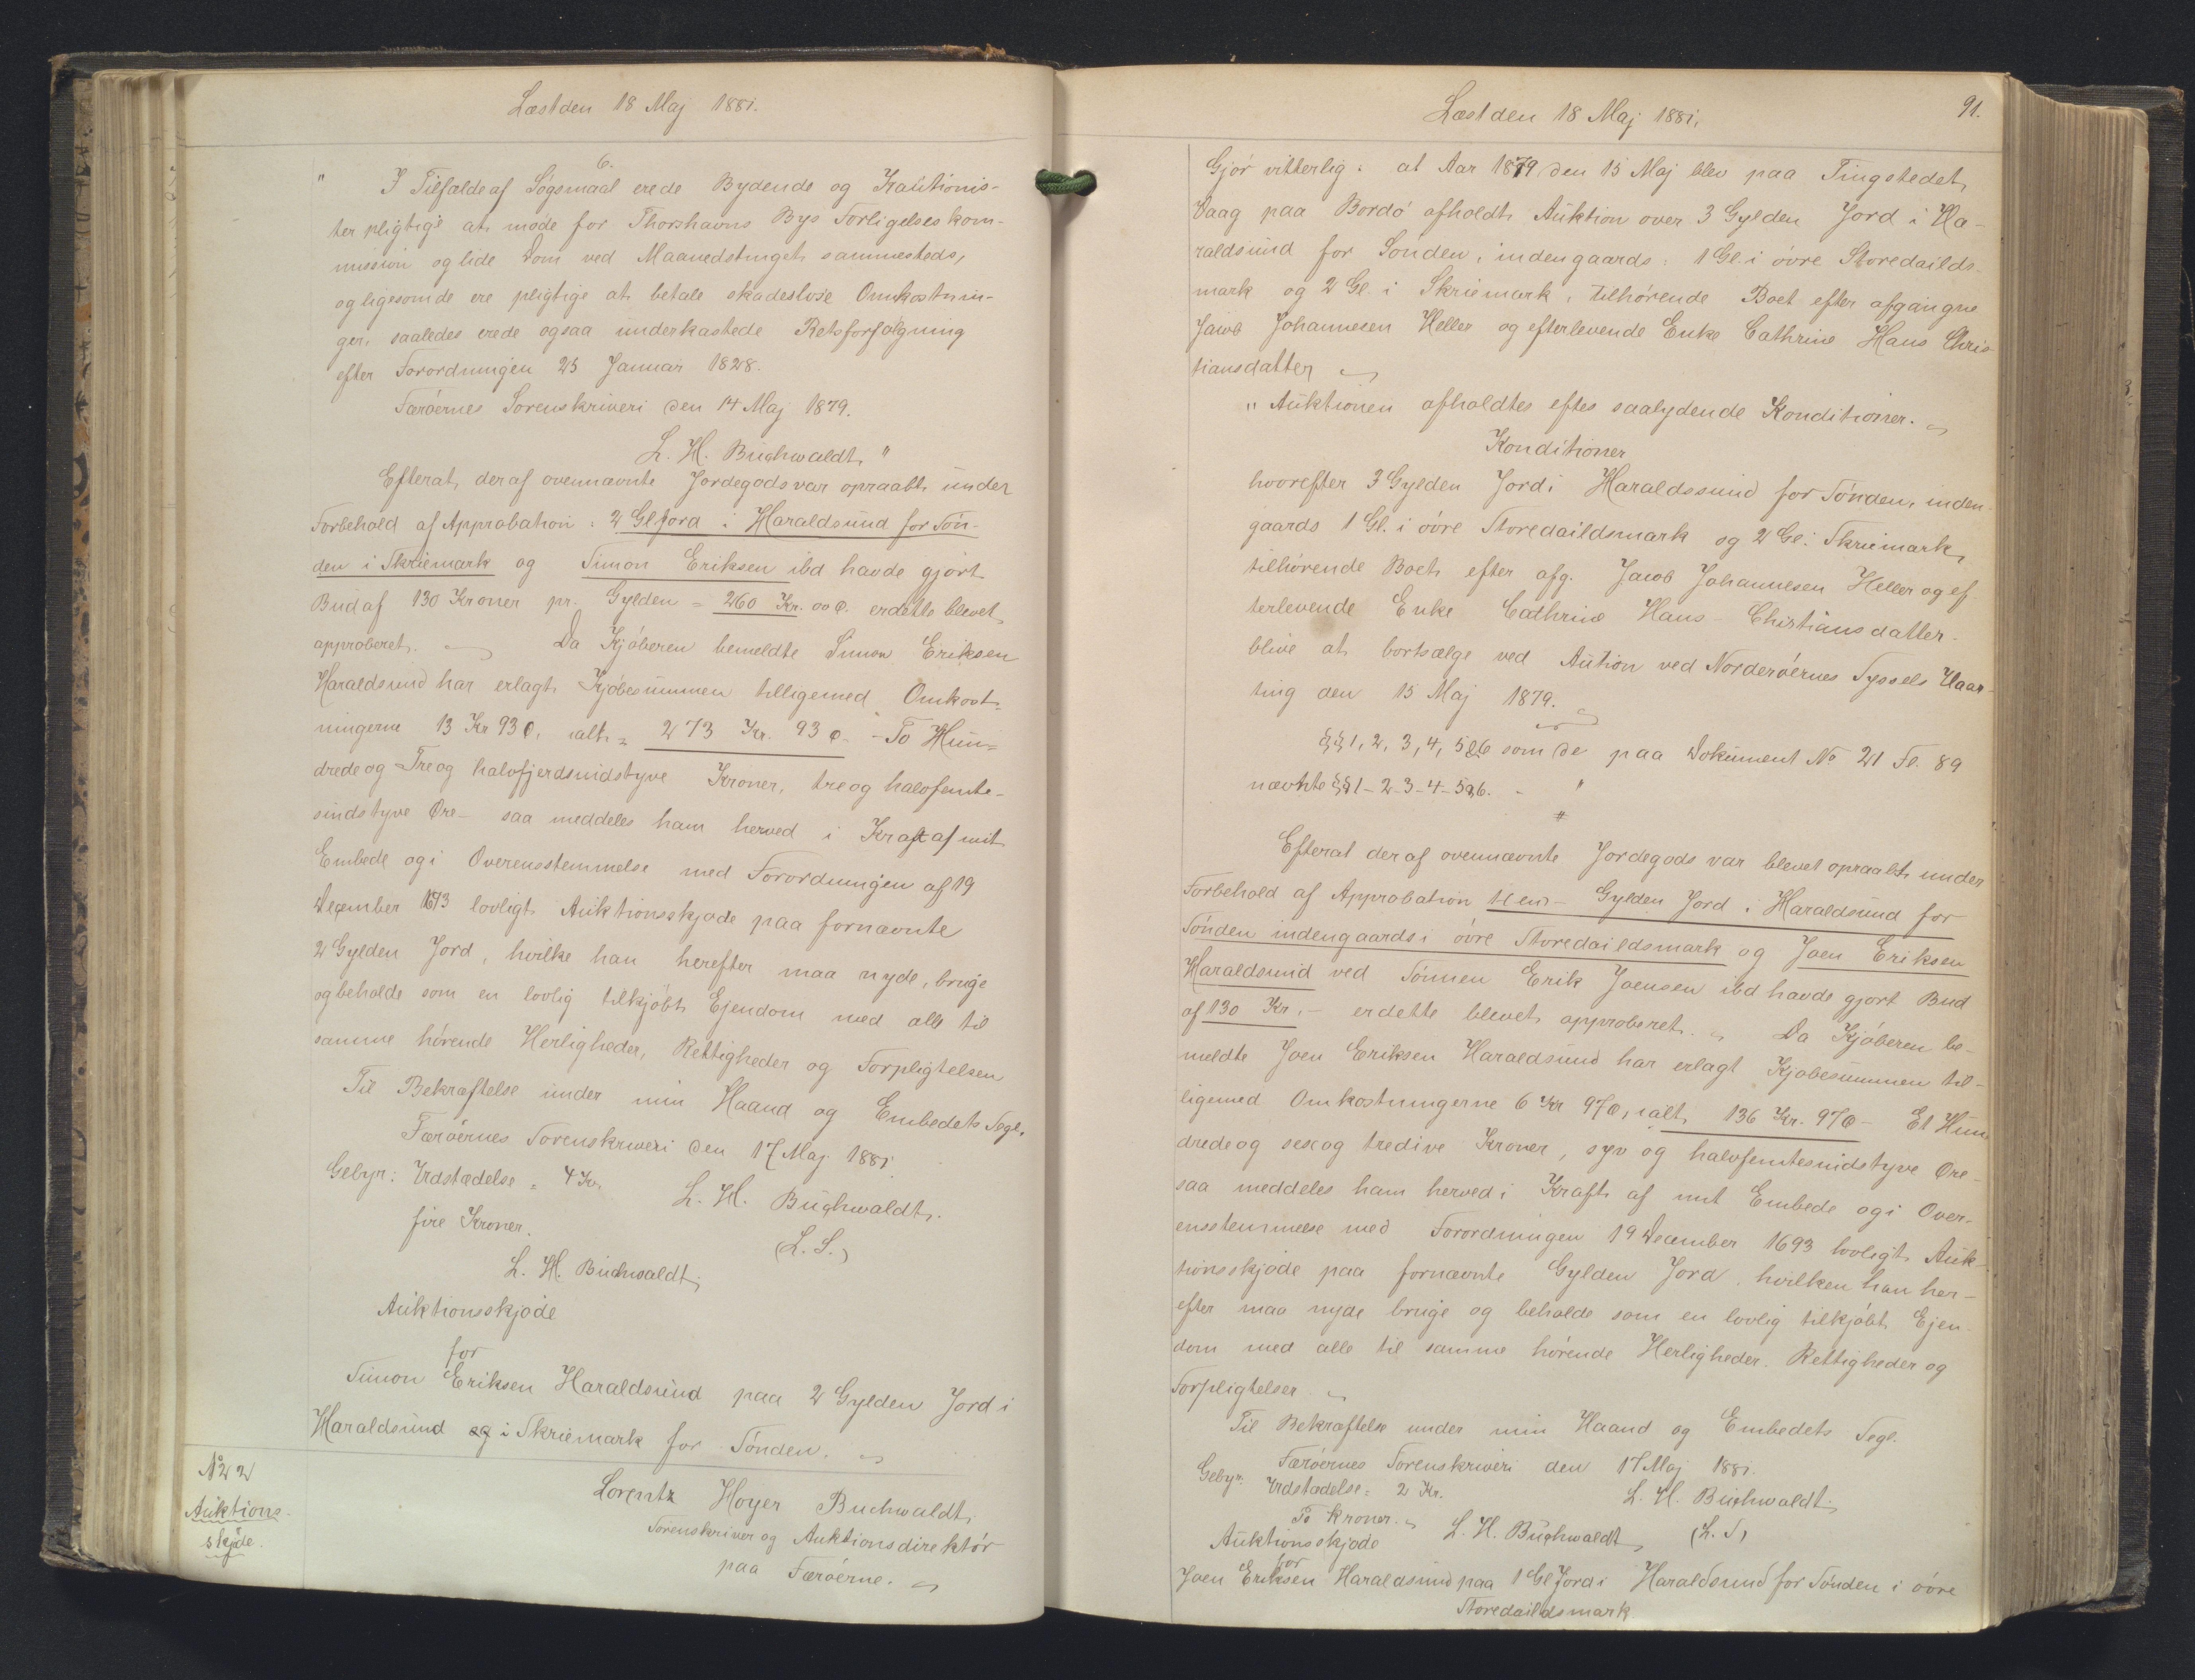 Læst den 18 Maj 1881.
6.
" I Tilfælde af Søgsmaal ere de Bydende og Kautionis-
ter pligtige at møde for Thorshavns Bys Forligelseskom-
mission og lide Dom ved Maanedstinget sammesteds,
og ligesom de ere pligtige at betale skadesløse Omkostnin-
ger, saaledes ere de ogsaa underkastede Retsforfølgning
efter Forordningen 25 Januar 1828.
Færøernes Sorenskriveri den 14 Maj 1879.
L. H. Buchwaldt "
Efterat der af ovennævnte Jordegods var opraabt under
Forbehold af Approbation: 2 Gl Jord i Haraldsund for Søn-
den i Skriemark og Simon Eriksen ibd havde gjort
Bud af 130 Kroner pr. Gylden = 260 Kr. 00 Ø. er dette blevet
approberet. Da Kjøberen bemeldte Simon Eriksen
Haraldsund har erlagt Kjøbesummen tilligemed Omkost-
ningerne 13 Kr 93 Ø, ialt = 273 Kr. 93 Ø - To Hun-
drede og Tre og halvfjerdsindstyve Kroner, tre og halvfemte-
sindstyve Øre - saa meddeles ham herved i Kraft af mit
Embede og i Overensstemmelse med Forordningen af 19
December 1693 lovligt Auktionsskjøde paa fornævnte
2 Gylden Jord, hvilke han herefter maa nyde, bruge
og beholde som en lovlig tilkjøbt Ejendom med alle til
samme hørende Herligheder, Rettigheder og Forpligtelser
Til Bekræftelse under min Haand og Embedets Segl.
Færøernes Sorenskriveri den 17 Maj 1881
Gebyr: Udstædelse = 4 Kr. L. H. Buchwaldt.
fire Kroner. (L. S.)
L. H. Buchwaldt
Auktionsskjøde
for
Simon Eriksen Haraldsund paa 2 Gylden Jord i
Haraldsund og i Skriemark for Sønden.
No 22
Auktions-
skjøde.
Lorentz Høyer Buchwaldt
Sorenskriver og Auktionsdirektør
paa Færøerne.
Læst den 18 Maj 1881.
91.
Gjør vitterlig: at Aar 1879 den 15 Maj blev paa Tingstedet
Vaag paa Bordø afholdt Auktion over 3 Gylden Jord i Ha-
raldsund for Sønden, indengaards: 1 Gl. i øvre Storedailds-
mark og 2 Gl. i Skriemark, tilhørende Boet efter afgangne
Jacob Johannesen Heller og efterlevende Enke Cathrine Hans Chris-
tiansdatter
" Auktionen afholdtes eftes saalydende Konditioner.
Konditioner
hvorefter 3 Gylden Jord i Haraldssund for Sønden, inden-
gaards 1 Gl. i øvre Storedaildsmark og 2 Gl. i Skriemark,
tilhørende Boet efter afg. Jacob Johannesen Heller og ef-
terlevende Enke Cathrine Hans-Christiansdatter
blive at bortsælge ved Aution ved Norderøernes Syssels Vaar-
ting den 15 Maj 1879.
§§ 1, 2, 3, 4, 5 & 6 som de paa Dokument No 21 Fl. 89
nævnte §§ 1-2-3-4-5 & 6. - "
Efterat der af ovennævnte Jordegods var blevet opraabt under
Forbehold af Approbation 1 (en) - Gylden Jord i Haraldsund for
Sønden indengaards i øvre Storedaildsmark og Joen Eriksen
Haraldsund ved Sønnen Erik Joensen ibd havde gjort Bud
af 130 Kr. - er dette blevet approberet. Da Kjøberen be-
meldte Joen Eriksen Haraldsund har erlagt Kjøbesummen til-
ligemed Omkostningerne 6 Kr 97 Ø, ialt 136 Kr. 97 Ø - Et Hun
drede og sex og tredive Kroner, syv og halvfemtesindstyve Øre -
saa meddeles ham herved i Kraft af mit Embede og i Over-
ensstemmelse med Forordningen 19 December 1693 lovligt Auk-
tionsskjøde paa fornævnte Gylden Jord, hvilken han her-
efter maa nyde bruge og beholde som en lovlig tilkjøbt Ejen-
dom med alle til samme hørende Herligheder. Rettigheder og
Forpligtelser
Til Bekræftelse under min Haand og Embedets Segl.
Færøernes Sorenskriveri den 17 Maj 1881.
Gebyr. Udstædelse = 2 Kr. L. H. Buchwaldt
To Kroner. L. H. Buchwaldt (L. S)
Auktionsskjøde
for
Joen Eriksen Haraldsund paa 1 Gl Jord i Haraldsund for Sønden i øvre
Storedaildsmark